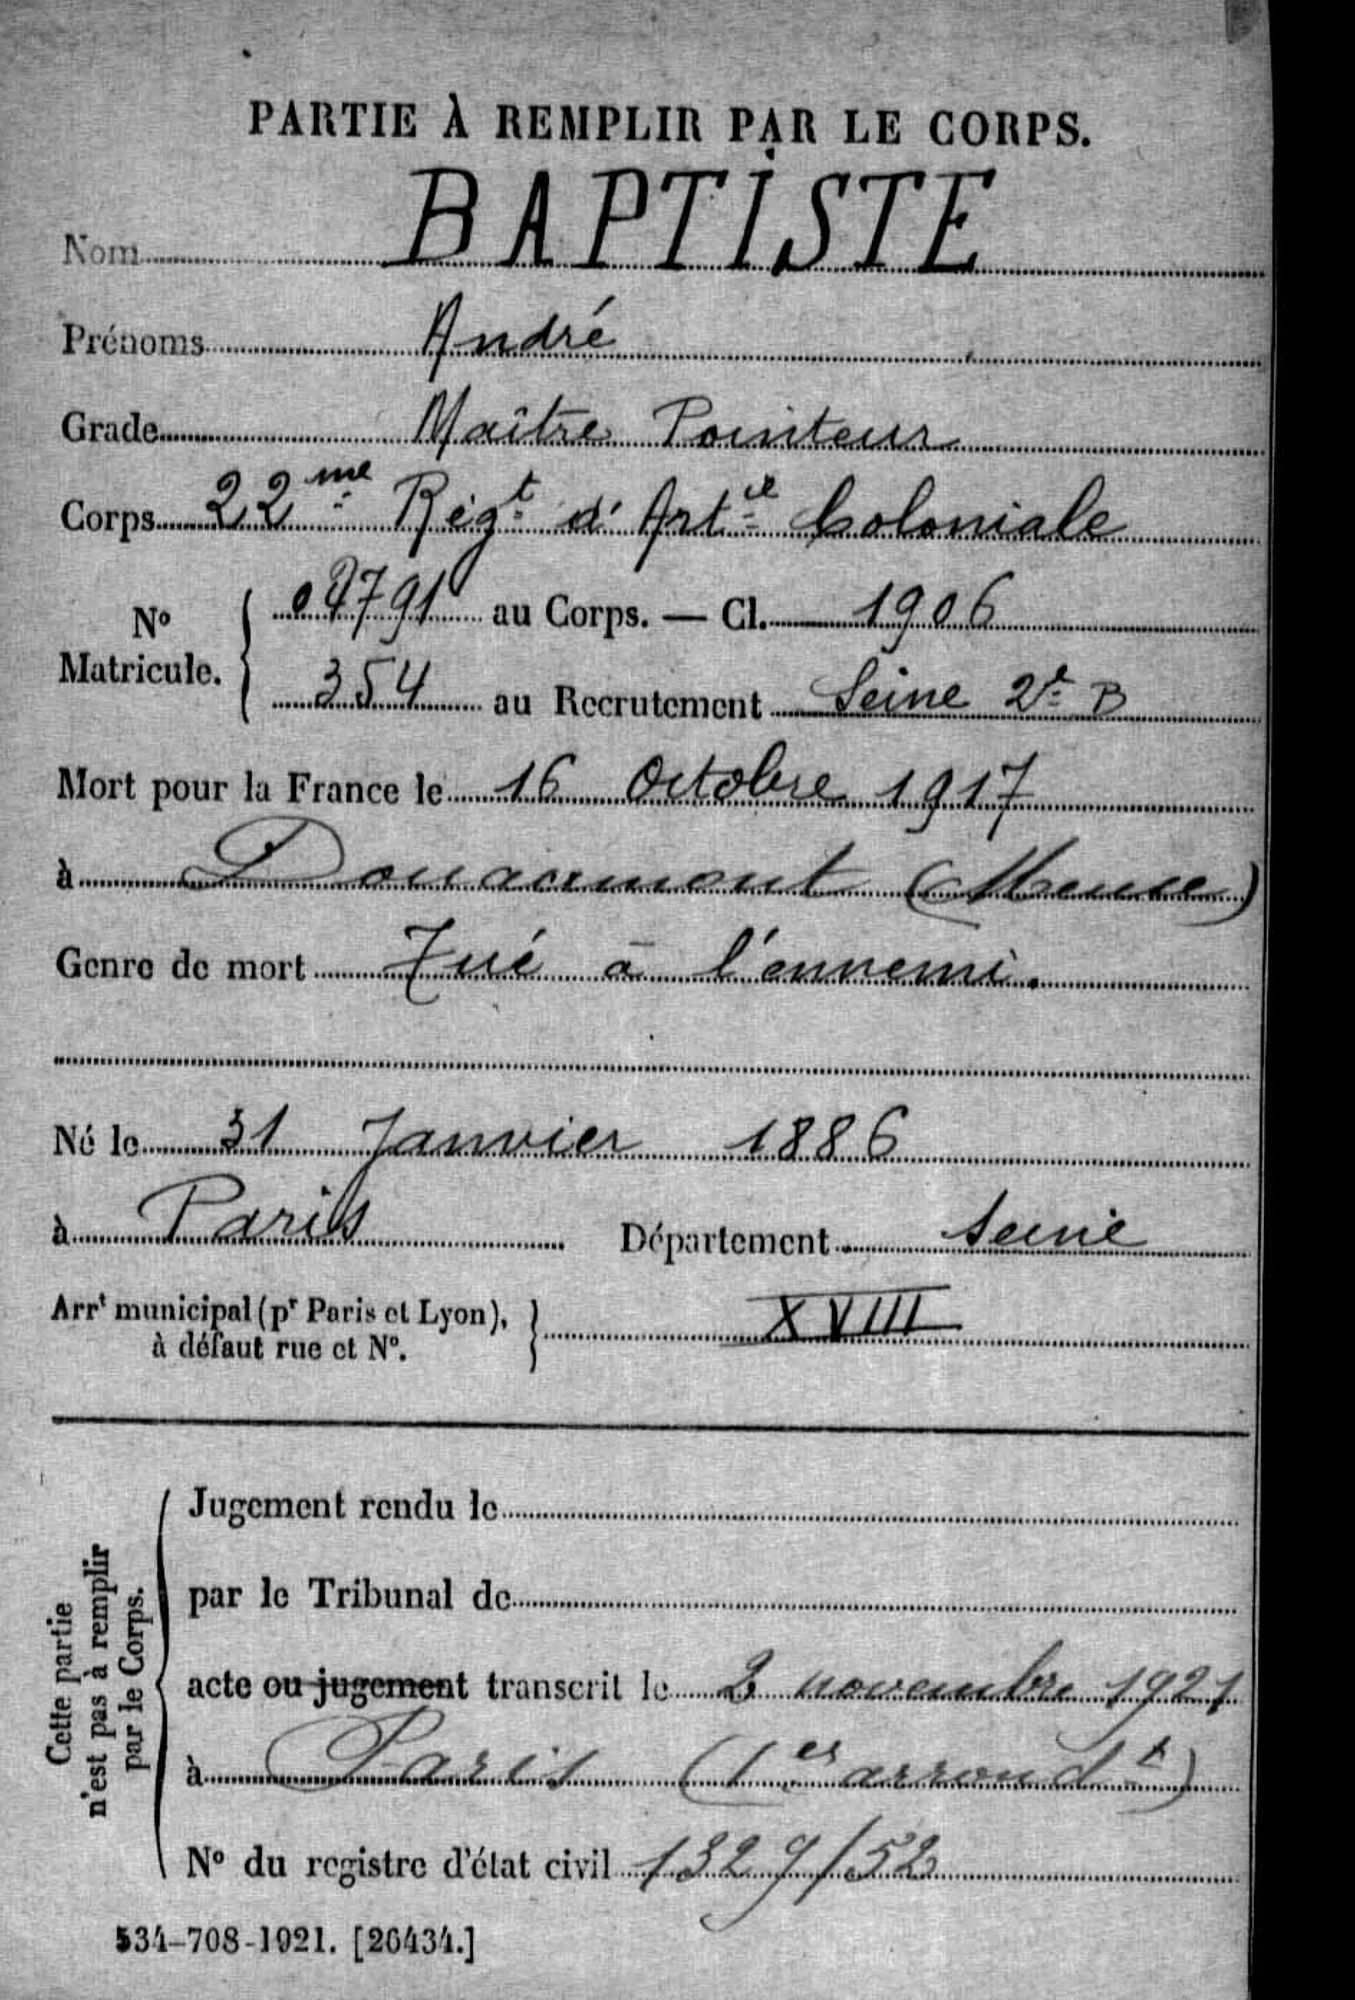 PARTIE À REMPLIR PAR LE CORPS.
Nom BAPTISTE
Prénoms André
Grade Maître Pointeur
Corps 22me Régt d'Artie Coloniale
No Matricule. { 04791 au Corps. — Cl. 1906
354 au Recrutement Seine 2e B
Mort pour la France le 16 Octobre 1917
à Douaumont (Meuse)
Genre de mort Tué à l'ennemi.
Né le 31 Janvier 1886
à Paris Département Seine
Arrt municipal (pr Paris et Lyon), à défaut rue et No. } XVIII
Cette partie n'est pas à remplir par le Corps.
Jugement rendu le
par le Tribunal de
acte ou jugement transcrit le 2 novembre 1921
à Paris (1er arrondt)
No du registre d'état civil 1329/52
534-708-1921. [26434.]